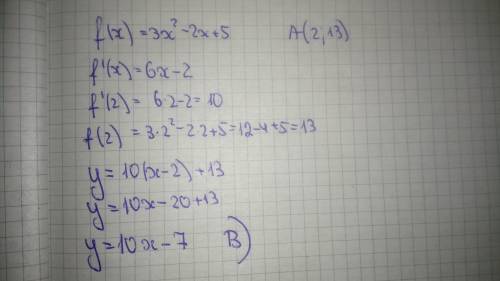 f(x) = 3x² - 2x + 5 A(2, 13)
f'(x) = 6x - 2
f'(2) = 6·2 - 2 = 10
f(2) = 3·2² - 2·2 + 5 = 12 - 4 + 5 = 13
y = 10(x - 2) + 13
y = 10x - 20 + 13
y = 10x - 7 B)